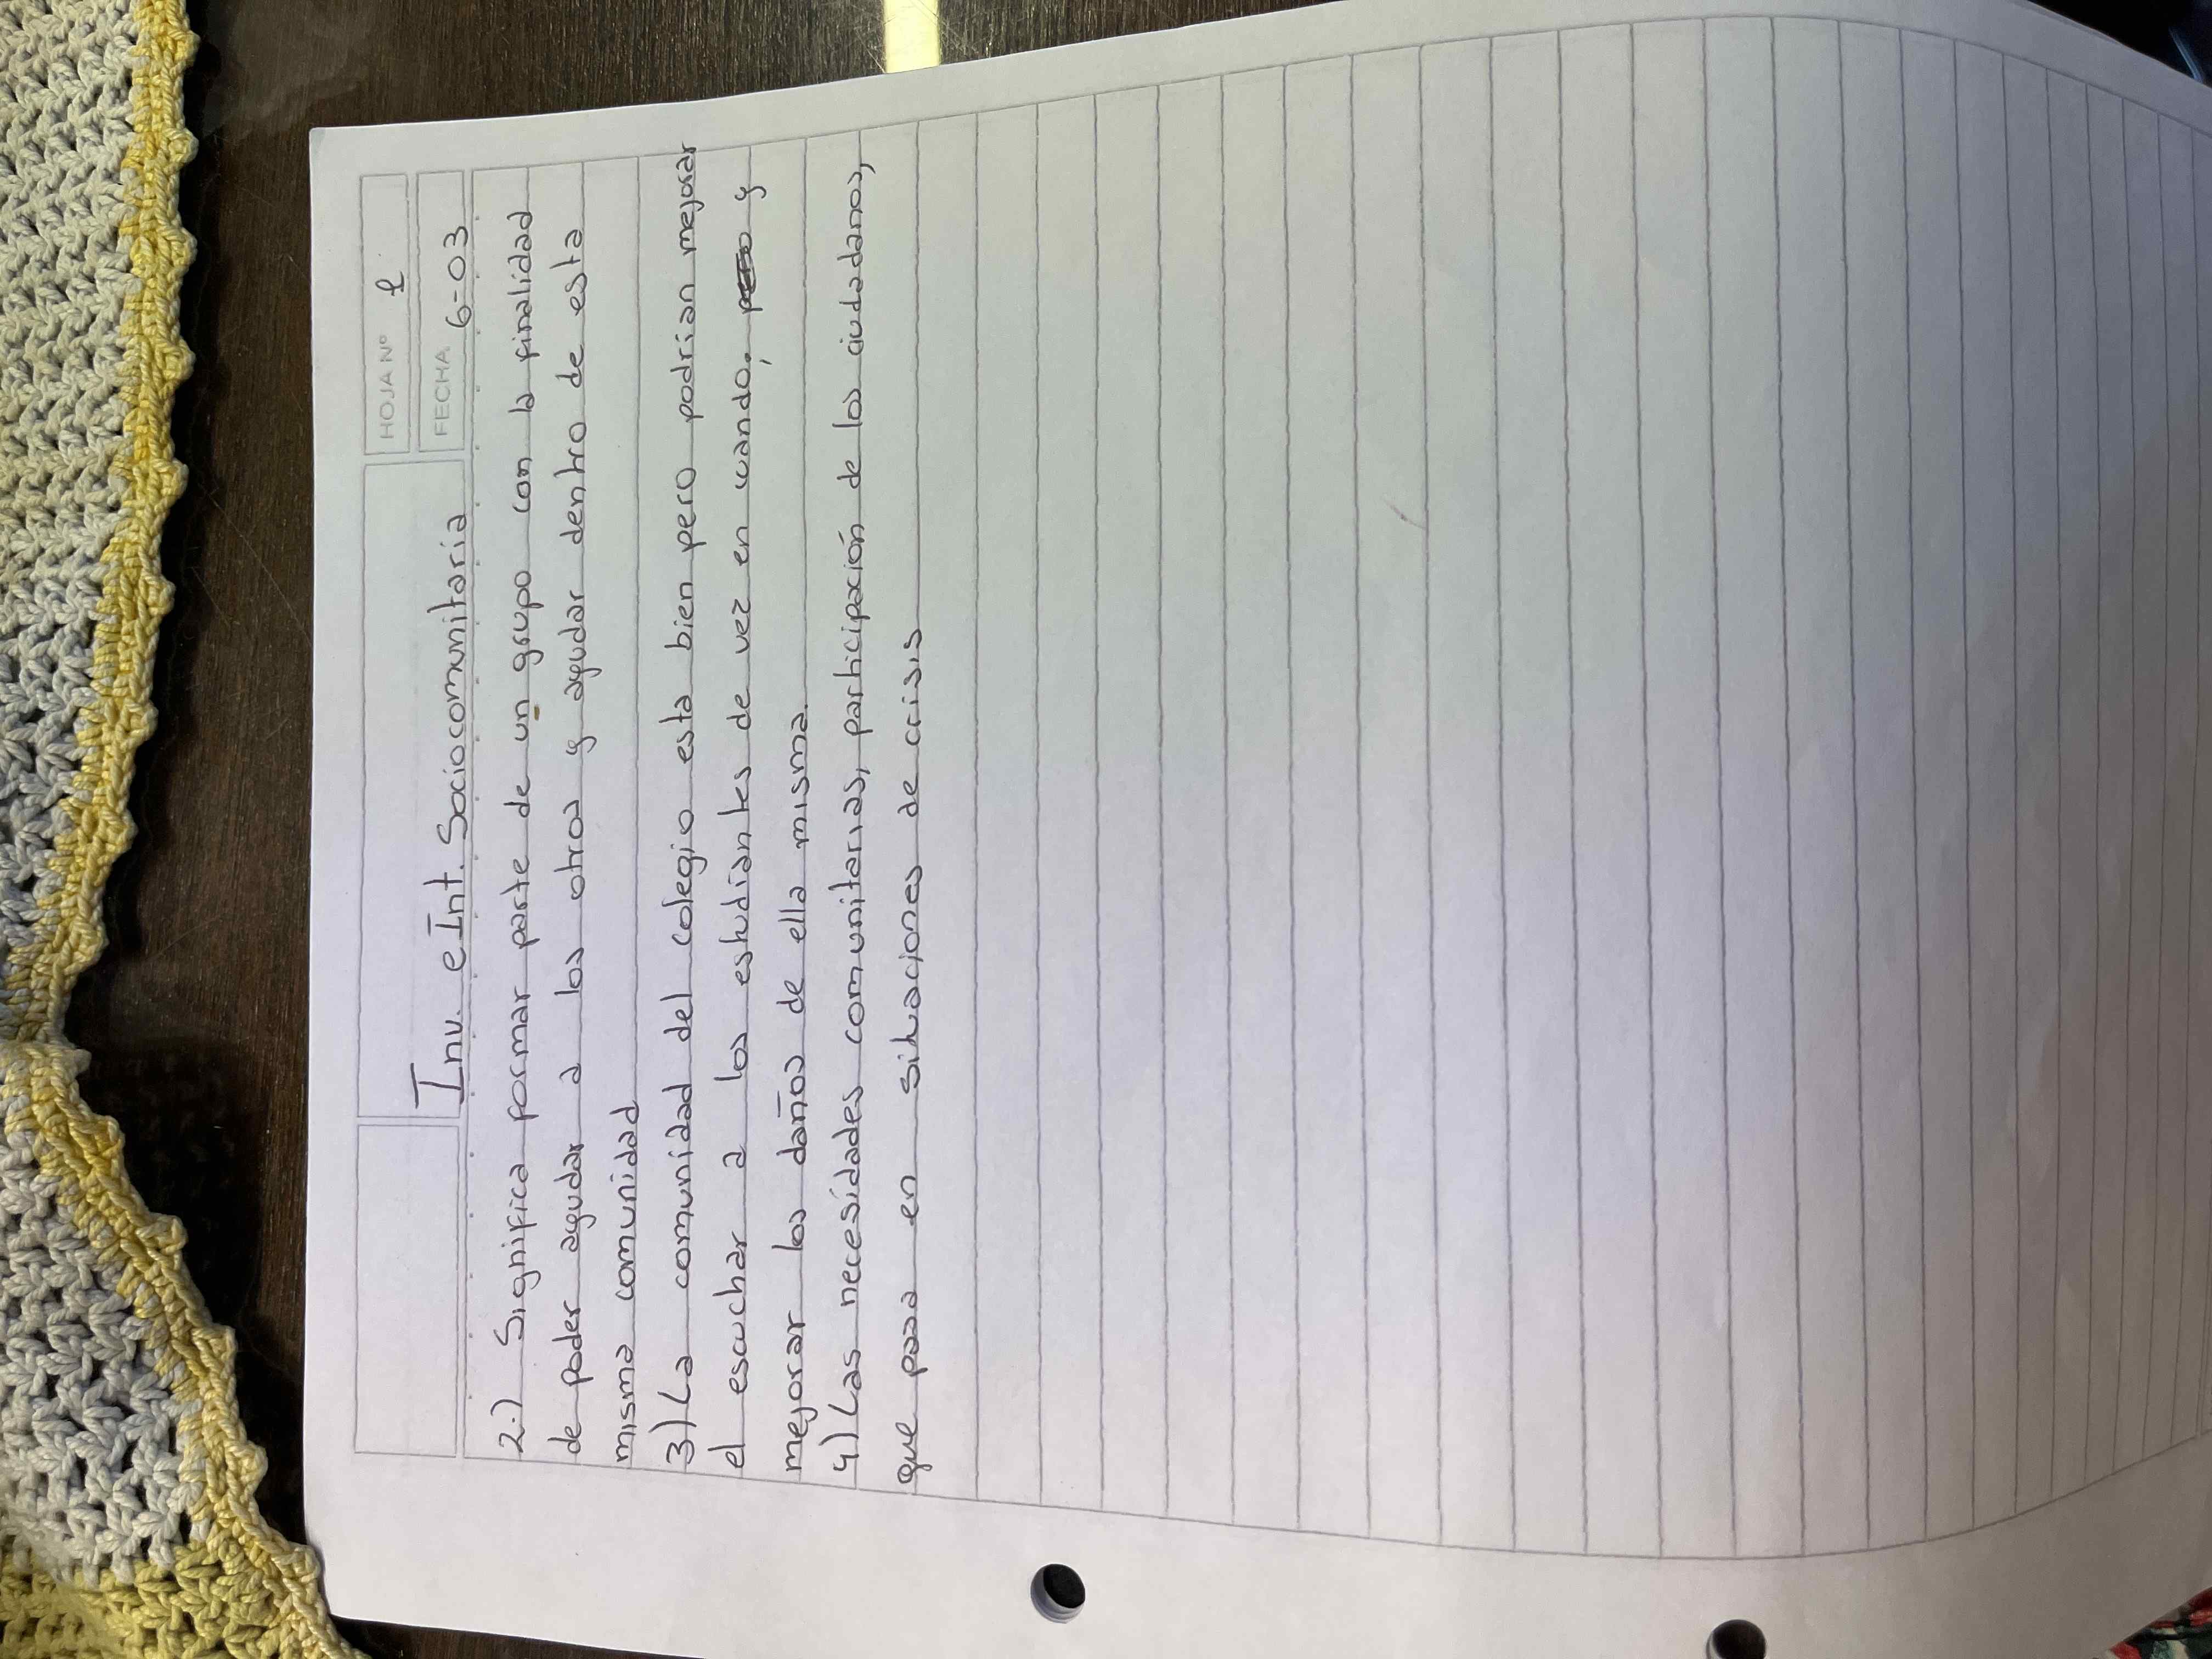 HOJA Nº 1
FECHA 6-03
Inv. e Int. Sociocomunitaria
2.) Significa formar parte de un grupo con la finalidad
de poder ayudar a los otros y ayudar dentro de esta
misma comunidad
3) La comunidad del colegio esta bien pero podrian mejorar
el escuchar a los estudiantes de vez en cuando, y
mejorar los daños de ella misma.
4) Las necesidades comunitarias, participación de los ciudadanos,
que pasa en situaciones de crisis